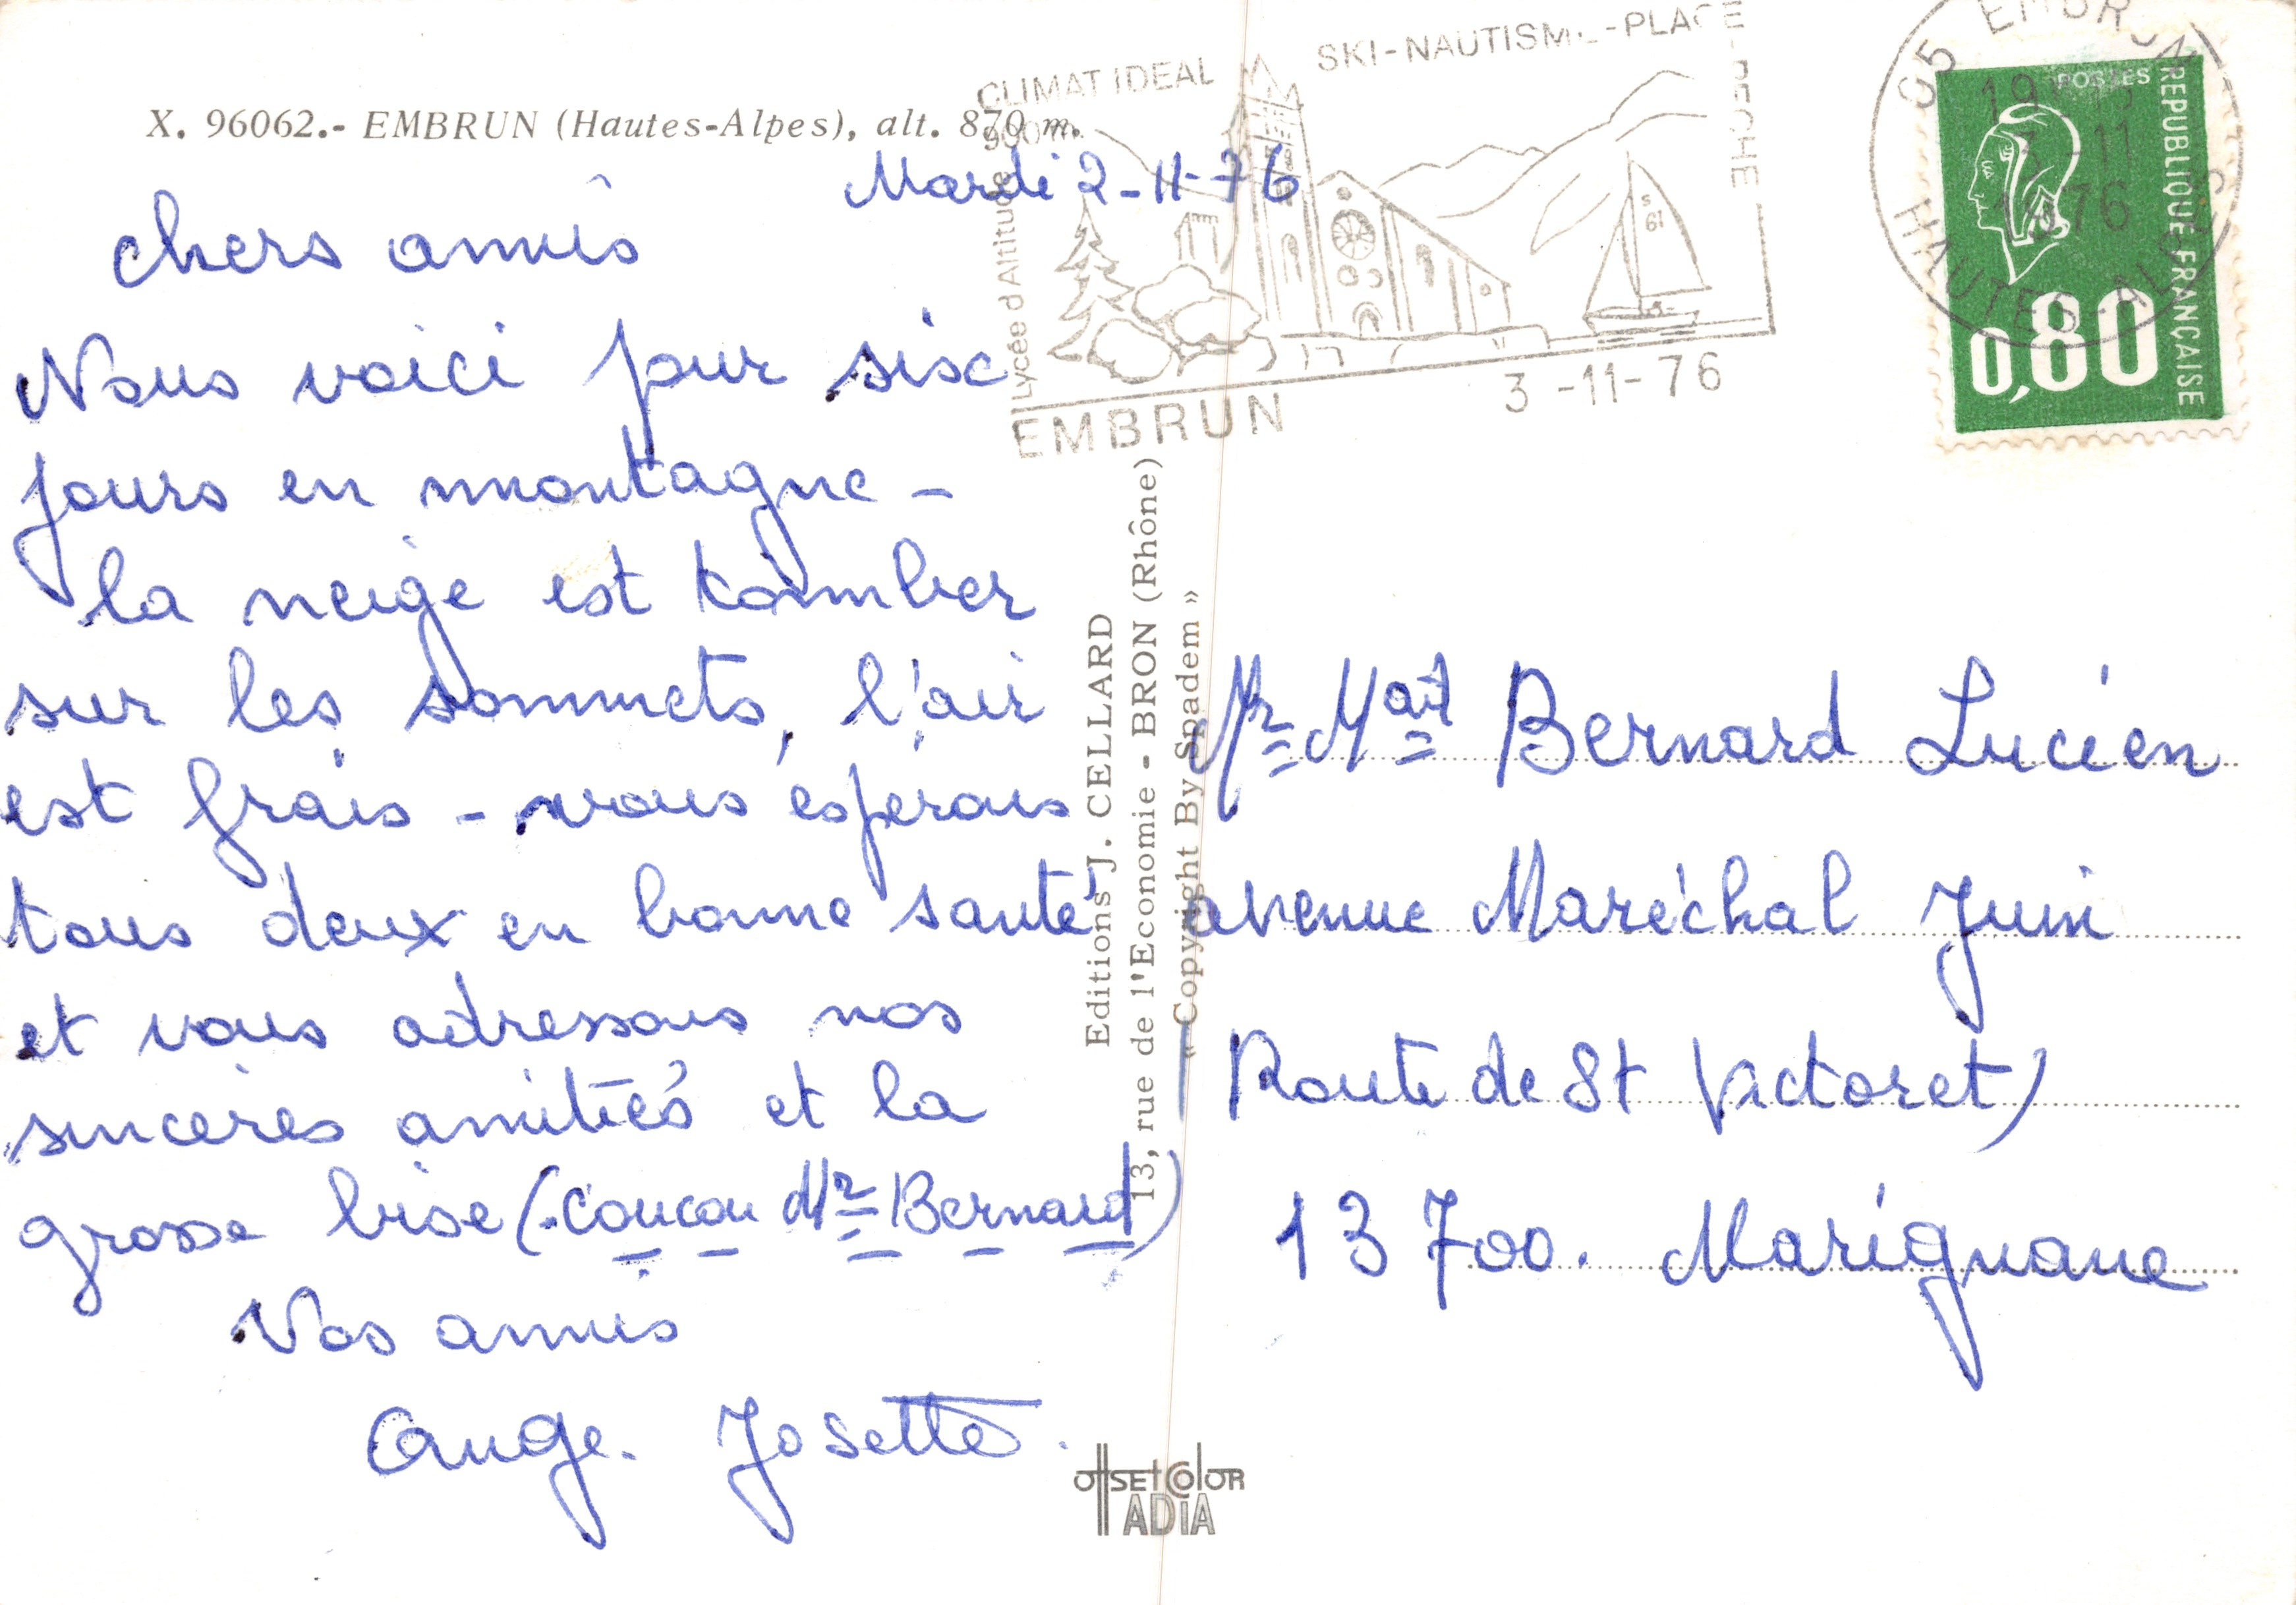 X. 96062.- EMBRUN (Hautes-Alpes), alt. 870 m.
Mardi 2-11-76
chers amis
Nous voici pour six
jours en montagne -
la neige est tomber
sur les sommets, l'air
est frais - vous espérons
tous deux en bonne santé
et vous adressons nos
sincères amitiés et la
grosse bise (coucou Mr Bernard)
Vos amis
Ange. Josette.
CLIMAT IDEAL
900 m.
SKI-NAUTISME-PLAGE
-PECHE
Lycée d'Altitude
S
61
EMBRUN
3 -11- 76
05 EMBRUN
19
3 -11
1976
HAUTES-ALPES
POSTES
REPUBLIQUE FRANÇAISE
0,80
Editions J. CELLARD
13, rue de l'Economie - BRON (Rhône)
« Copyright By Spadem »
Mr Mat Bernard Lucien
avenue Maréchal Juin
(Route de St Victoret)
13 700. Marignane
OffsEt Color
ADIA